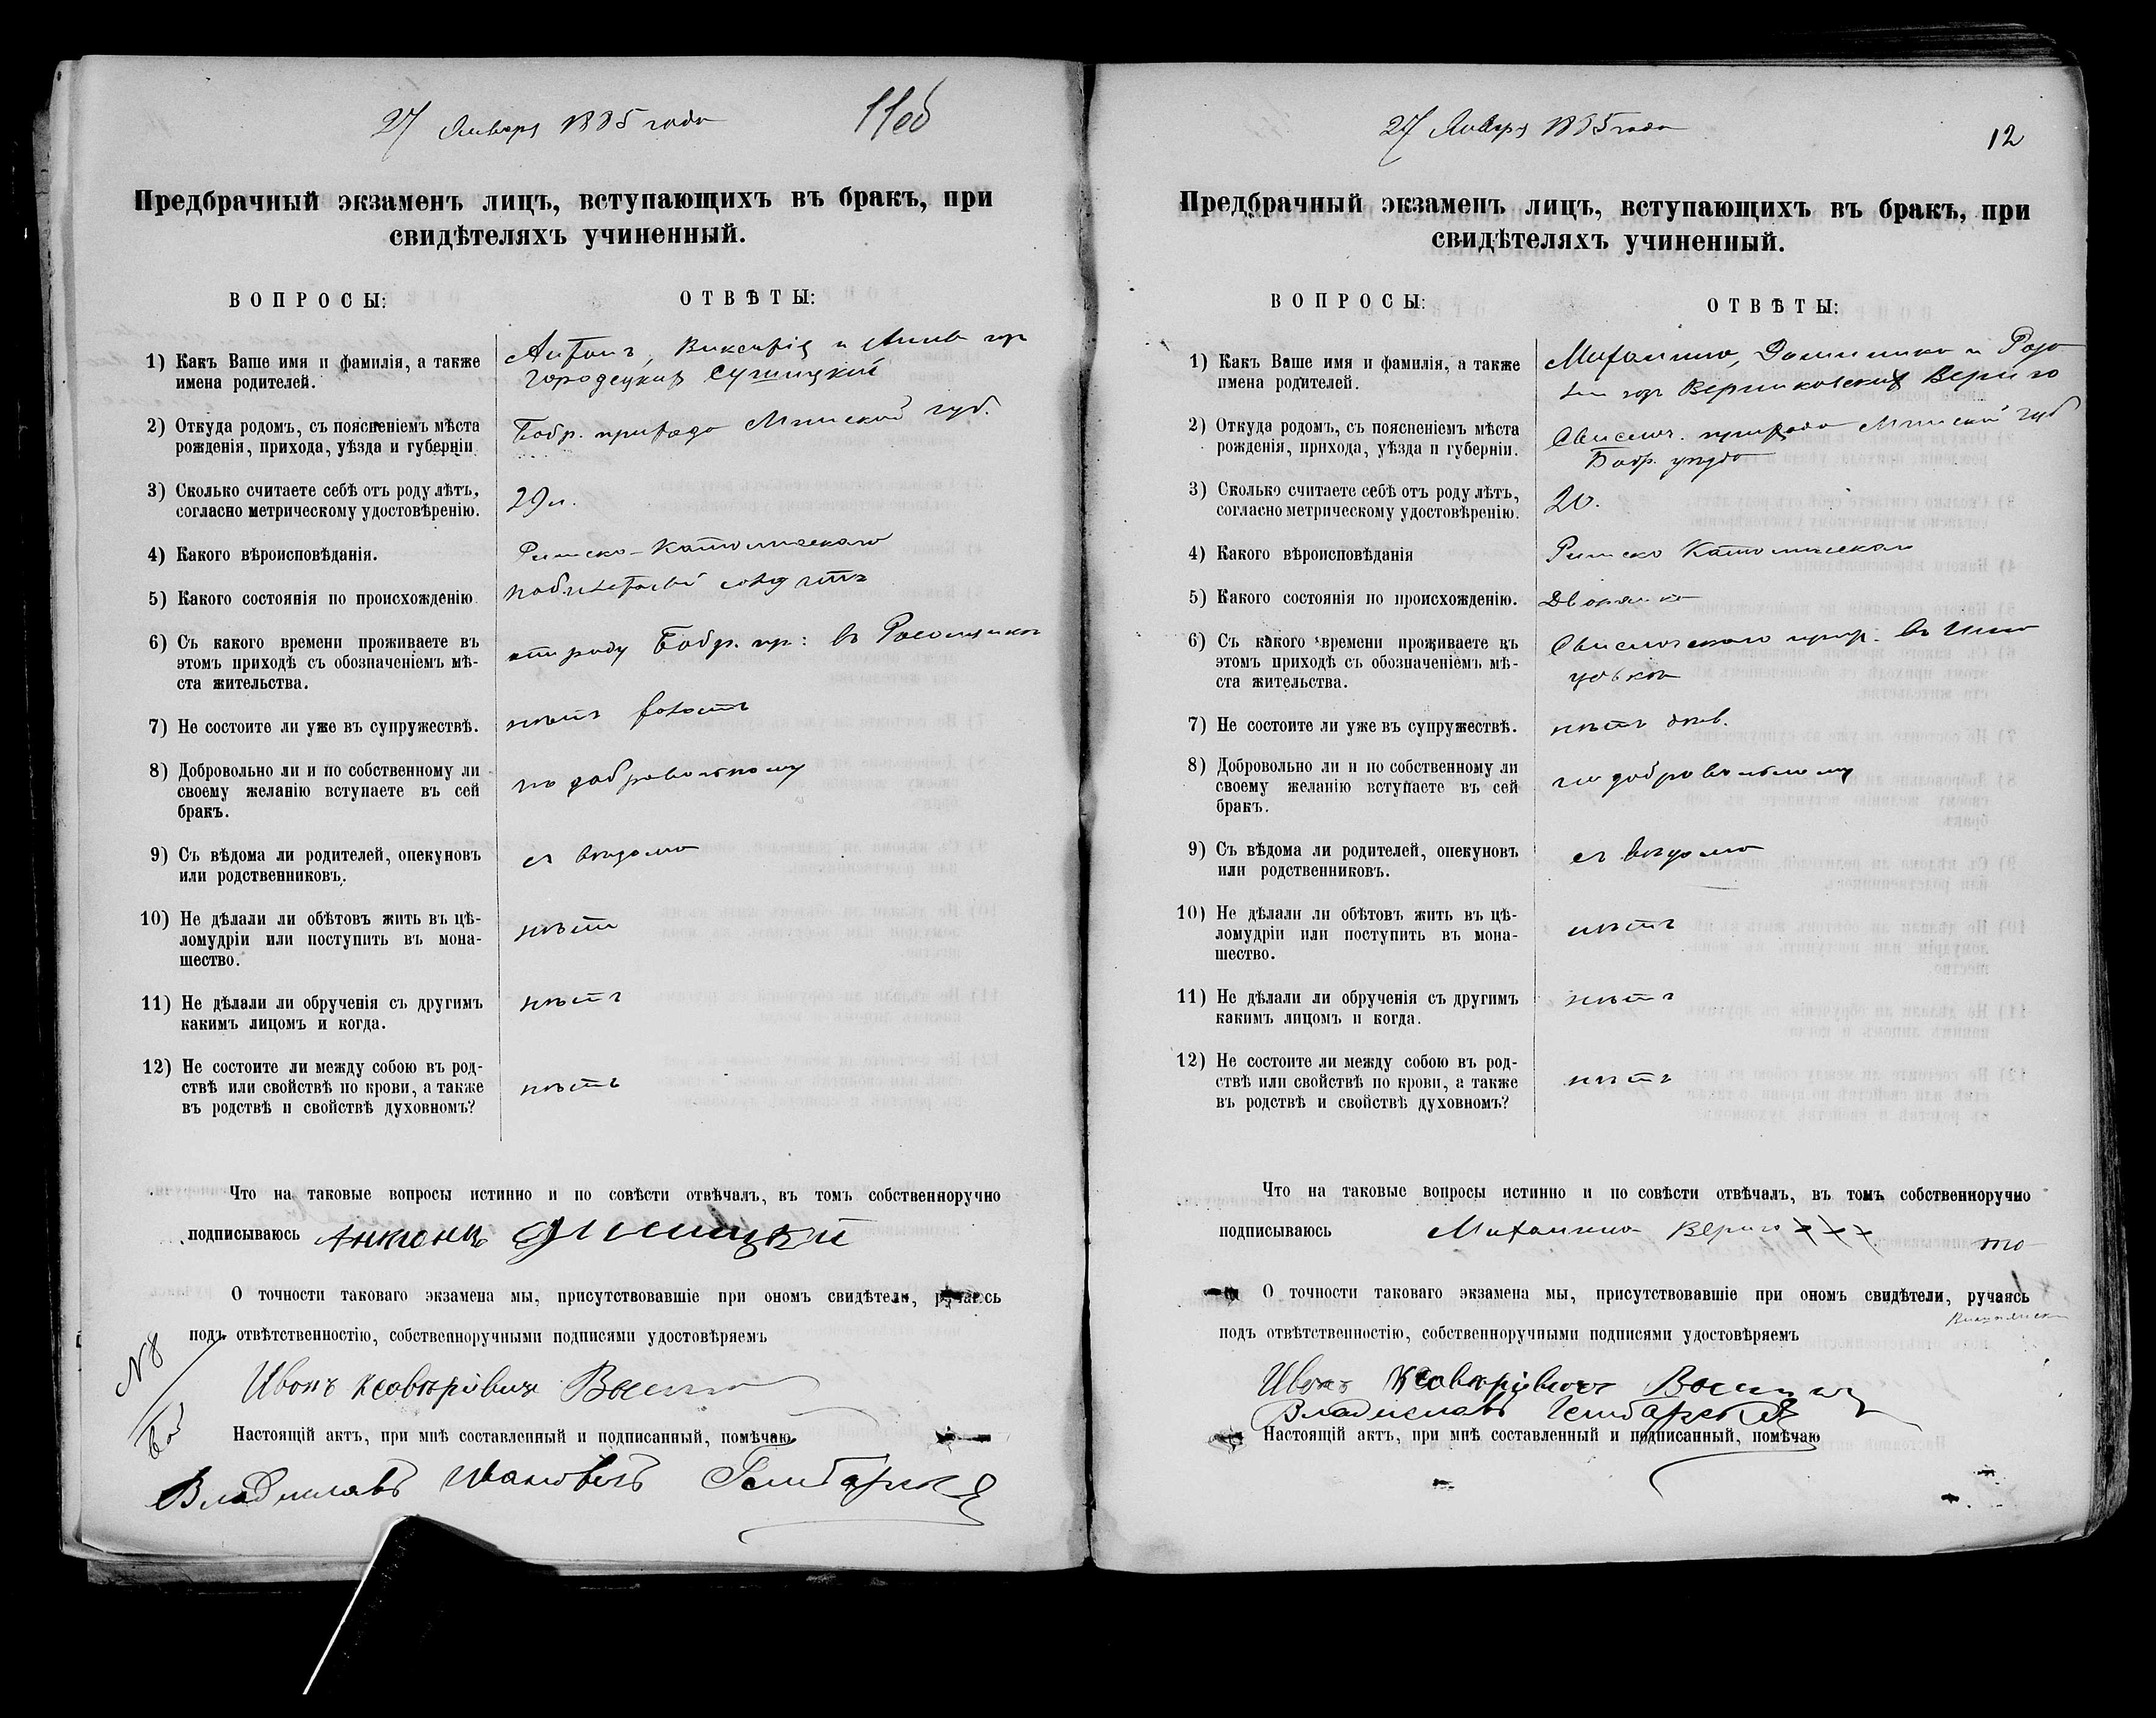 27 Января 1885 года
11об
Предбрачный экзаменъ лицъ, вступающихъ въ бракъ, при
свидѣтеляхъ учиненный.
ВОПРОСЫ:
ОТВѢТЫ:
1) Какъ Ваше имя и фамилія, а также
имена родителей.
Антонъ, Викентія и Анна
Городецкихъ Сушицкій
2) Откуда родомъ, съ поясненіемъ мѣста
рожденія, прихода, уѣзда и губерніи
Бобр. прихода Минской губ.
3) Сколько считаете себѣ отъ роду лѣтъ,
согласно метрическому удостовѣренію.
29 л.
4) Какого вѣроисповѣданія.
Римско-Католическаго
5) Какого состоянія по происхожденію
6) Съ какого времени проживаете въ
этомъ приходѣ съ обозначеніемъ мѣ-
ста жительства.
отъ роду Бобр. пр: въ
7) Не состоите ли уже въ супружествѣ.
нѣтъ холостъ
8) Добровольно ли и по собственному ли
своему желанію вступаете въ сей
бракъ.
по добровольному
9) Съ вѣдома ли родителей, опекуновъ
или родственниковъ.
съ вѣдома
10) Не дѣлали ли обѣтовъ жить въ цѣ-
ломудріи или поступить въ мона-
шество.
нѣтъ
11) Не дѣлали ли обрученія съ другимъ
какимъ лицомъ и когда.
нѣтъ
12) Не состоите ли между собою въ род-
ствѣ или свойствѣ по крови, а также
въ родствѣ и свойствѣ духовномъ?
нѣтъ
Что на таковые вопросы истинно и по совѣсти отвѣчалъ, въ томъ собственноручно
подписываюсь Антонъ Сушицкій
О точности таковаго экзамена мы, присутствовавшіе при ономъ свидѣтели, ручаясь
подъ отвѣтственностію, собственноручными подписями удостовѣряемъ
N 8
Иванъ Ксавѣровичъ
Настоящій актъ, при мнѣ составленный и подписанный, помѣчаю
Владиславъ Ивановичъ
27 Января 1885 года
12
Предбрачный экзаменъ лицъ, вступающихъ въ бракъ, при
свидѣтеляхъ учиненный.
ВОПРОСЫ:
ОТВѢТЫ:
1) Какъ Ваше имя и фамилія, а также
имена родителей.
Михалина, Доминика и Роза
Верига
2) Откуда родомъ, съ поясненіемъ мѣста
рожденія, прихода, уѣзда и губерніи.
Свислоч. прихода Минской губ
Бобр. уѣзда
3) Сколько считаете себѣ отъ роду лѣтъ,
согласно метрическому удостовѣренію.
20.
4) Какого вѣроисповѣданія
Римско Католическаго
5) Какого состоянія по происхожденію.
Дворянка
6) Съ какого времени проживаете въ
этомъ приходѣ съ обозначеніемъ мѣ-
ста жительства.
Свислочскаго прих. въ
7) Не состоите ли уже въ супружествѣ.
нѣтъ дѣв.
8) Добровольно ли и по собственному ли
своему желанію вступаете въ сей
бракъ.
по добровольному
9) Съ вѣдома ли родителей, опекуновъ
или родственниковъ.
съ вѣдома
10) Не дѣлали ли обѣтовъ жить въ цѣ-
ломудріи или поступить въ мона-
шество.
нѣтъ
11) Не дѣлали ли обрученія съ другимъ
какимъ лицомъ и когда.
нѣтъ
12) Не состоите ли между собою въ род-
ствѣ или свойствѣ по крови, а также
въ родствѣ и свойствѣ духовномъ?
нѣтъ
Что на таковые вопросы истинно и по совѣсти отвѣчалъ, въ томъ собственноручно
подписываюсь Михалина Верига +++
О точности таковаго экзамена мы, присутствовавшіе при ономъ свидѣтели, ручаясь
подъ отвѣтственностію, собственноручными подписями удостовѣряемъ
Иванъ Ксавѣріевичъ
Владиславъ
Настоящій актъ, при мнѣ составленный и подписанный, помѣчаю